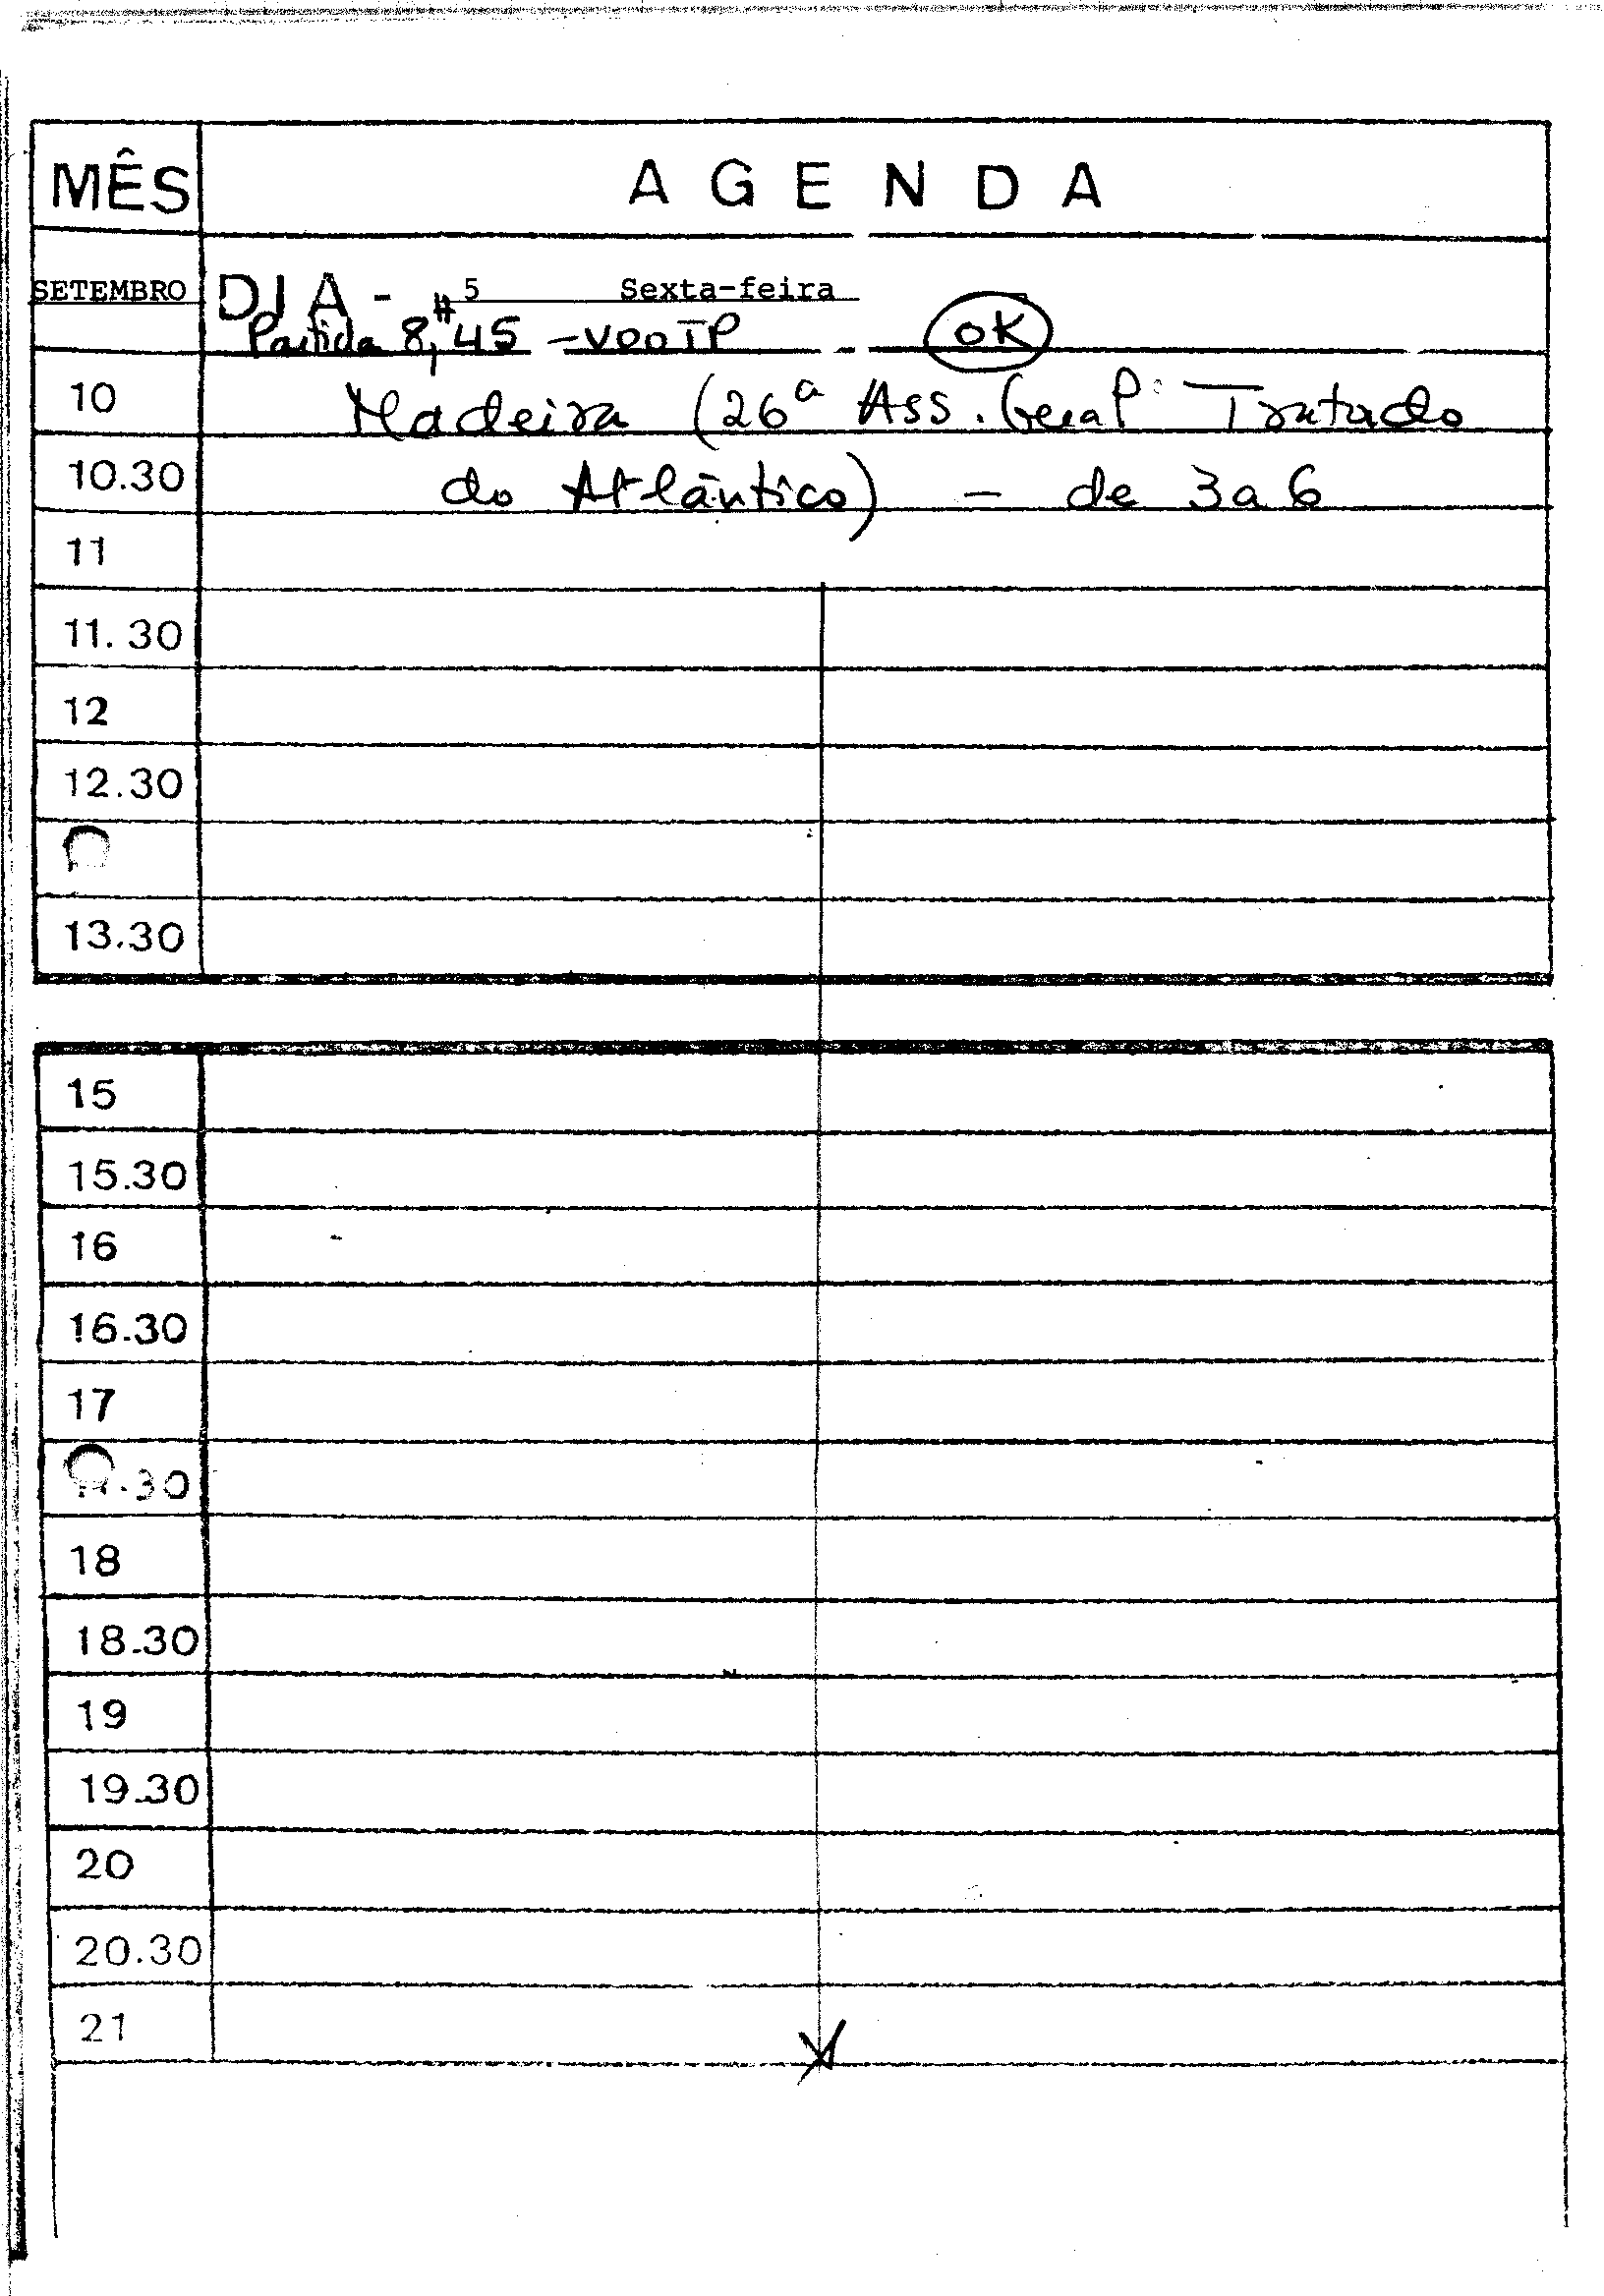 MÊS A G E N D A
SETEMBRO DIA - 5 Sexta-feira
Partida 8,H45 - VOO TP OK
10 Madeira (26ª Ass. Geral Tratado
10.30 do Atlântico) - de 3 a 6
11
11.30
12
12.30
13.30
15
15.30
16
16.30
17
.30
18
18.30
19
19.30
20
20.30
21